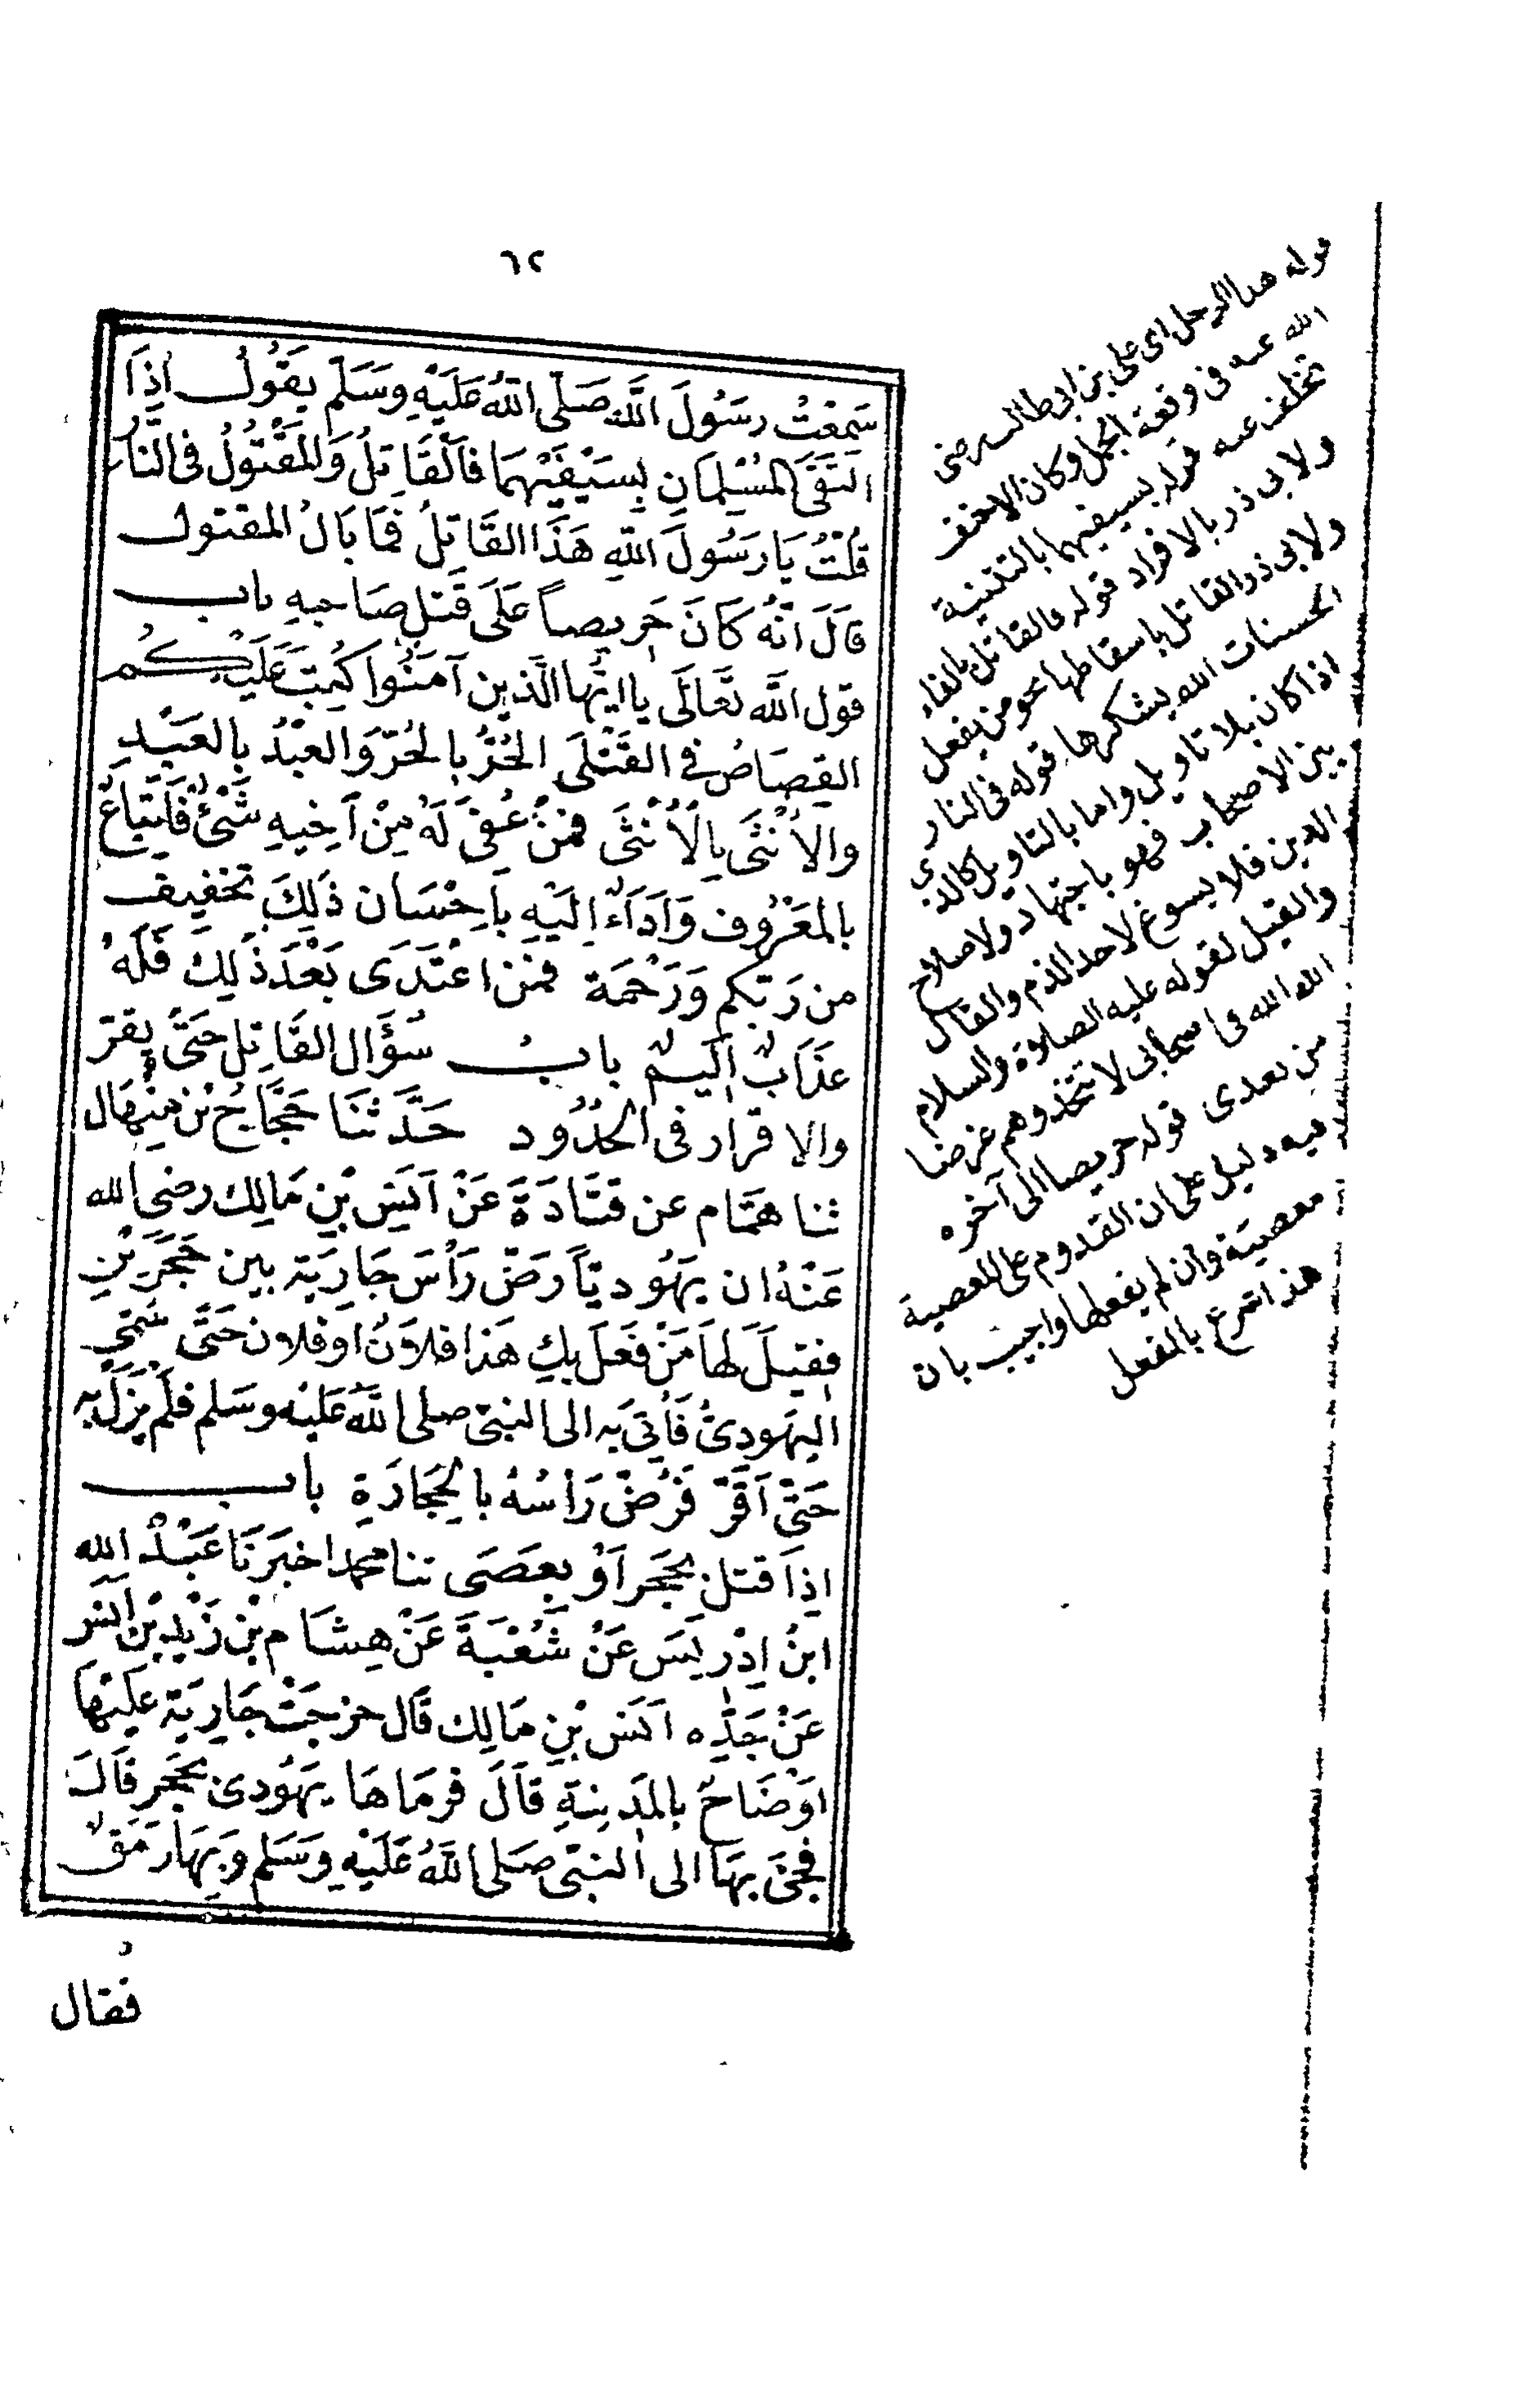 ٦٢
سَمِعْتُ رسَُولَ اللَّه صَلّى اللهُ عَلَيْهِ وسَلّم يقَُولُ اِذَا
التَقَى المُسْلِمَانِ بِسَيْفَيْهِمَا فَالْقَاتِلُ وَالمَقْتُولُ فى النَّار
قُلْتُ يَا رَسُولَ اللهِ هَذَا القَاتِلُ فَمَا بَالُ المقتول
قَالَ انّهُ كَانَ حَرِيصاً عَلَى قَتْلِ صَاحِبِهِ باب
قول الله تَعَالَى يا ايّهَا الَّذين آمَنُوا كُتِبَ عَلَيْكُم
القِصَاصُ فى القَتْلَى الحُرُّ بالحُرِّ وَالعَبْدُ بِالعَبْدِ
والأُنْثَى بِالْأُنْثَى فَمَنْ عُفِىَ لَهُ مِنْ آخِيهِ شَىْءٌ فَاتِّبَاعٌ
بالمَعْرُوفِ وَاَدَاءٌ اِلَيْهِ بِاِحْسَان ذَلِكَ تخفيف
من رَبّكم وَرَحْمَة فمَن اعْتَدَى بَعْدَ ذَلِكَ فَلَهُ
عَذَابٌ اَلِيمٌ بابُ سُؤَال القَاتِل حَتَّى يقرّ
والاقرار فى الحُدُود حَدَّثنَا حَجَّاجُ بْن مِنْهَال
ثنا هَمَّام عن قتَادَةَ عَنْ اَنَسِ بْنِ مَالِك رضى الله
عَنْهُ ان يَهُودِيّاً رَضّ رَأسَ جَارِيَةٍ بين حَجَرَيْنِ
فقيلَ لهَا مَنْ فَعَلَ بِكِ هَذا فلاَنٌ او فلان حَتَّى سُمّى
اليَهُودِىُّ فَاُتِىَ بِه الى النبىّ صلى اللهُ عَليْه وسَلم فلَمْ يزَلْ بِه
حَتَّى اَقَرّ فَرُضّ رَأْسُهُ بالحِجَارَةِ باب
اِذَا قتل بحَجَر اَوْ بعَصَى ثنا محمد اخبَرَنَا عَبْدُ اللهِ
ابنُ اِدْرِيسَ عَنْ شُعْبَةَ عَنْ هِشَام بْن زَيْدِ بْن اَنَس
عَنْ جَدِّه اَنَس بْنِ مَالِك قَال خرَجَتْ جَارِيَة عَلَيْهَا
اَوْضَاحٌ بالمَدِينةِ قَالَ فرَمَاهَا يهَوُدىّ بحَجَرٍ قَالَ
فجىَ بهَا الى النبىّ صَلى اللهُ عَلَيْهِ وَسَلم وَبِهَا رَمَقٌ
فقال
قوله هذا الرجل اى على بن ابى طالب رضى
الله عنه فى وقعة الجمل وكان الاحنف
تخلف عنه قوله بسيفيهما بالتثنية
ولابى ذر بالافراد قوله فالقاتل بالفاء
ولابى ذر القاتل باسقاطها نحو من يفعل
الحسنات الله يشكرها قوله فى النار
اذا كان بلا تاويل واما بالتاويل كالذى
بين الاصحاب فهو باجتهاد ولاصلاح
الدين فلا يسوغ لاحد الذم والقاتل
والقتيل لقوله عليه الصلاة والسلام
الله الله فى اصحابى لا تتخذوهم غرضا
من بعدى قوله حريصا الى آخره
فيه دليل على ان القدوم على المعصية
معصية وان لم يفعلها واجيب بان
هذا شرع بالفعل